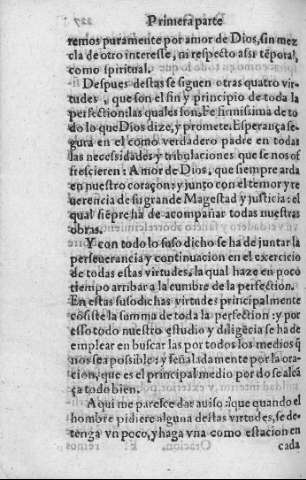 Primera parte
remos puramente por amor de Dios, sin mez
cla de otro interesse, ni respecto assi tẽporal,
como spiritual.
Despues destas se siguen otras quatro vir-
tudes, que son el fin y principio de toda la
perfection: las quales son. Fe firmissima de to
do lo que Dios dize, y promete. Esperança se
gura en el como verdadero padre en todas
las necessidades y tribulaciones que se nos of
frescieren: Amor de Dios, que siempre arda
en nuestro coraçon: y junto con el temor y re
uerencia de su grande Magestad y justicia: el
qual siẽpre ha de acompañar todas nuestras
obras.
Y con todo lo suso dicho se ha de juntar la
perseuerancia y continuacion en el exercicio
de todas estas virtudes, la qual haze en poco
tiempo arribar a la cumbre de la perfection.
En estas susodichas virtudes principalmente
cõsiste la summa de toda la perfection: y por
esso todo nuestro estudio y diligẽcia se ha de
emplear en buscar las por todos los medios q̃
nos sea possible: y señaladamente por la ora-
cion, que es el principal medio por do se alcã
ça todo bien.
Aqui me paresce dar auiso: que quando el
hombre pidiere alguna destas virtudes, se de-
tenga vn poco, y haga vna como estacion en
cada